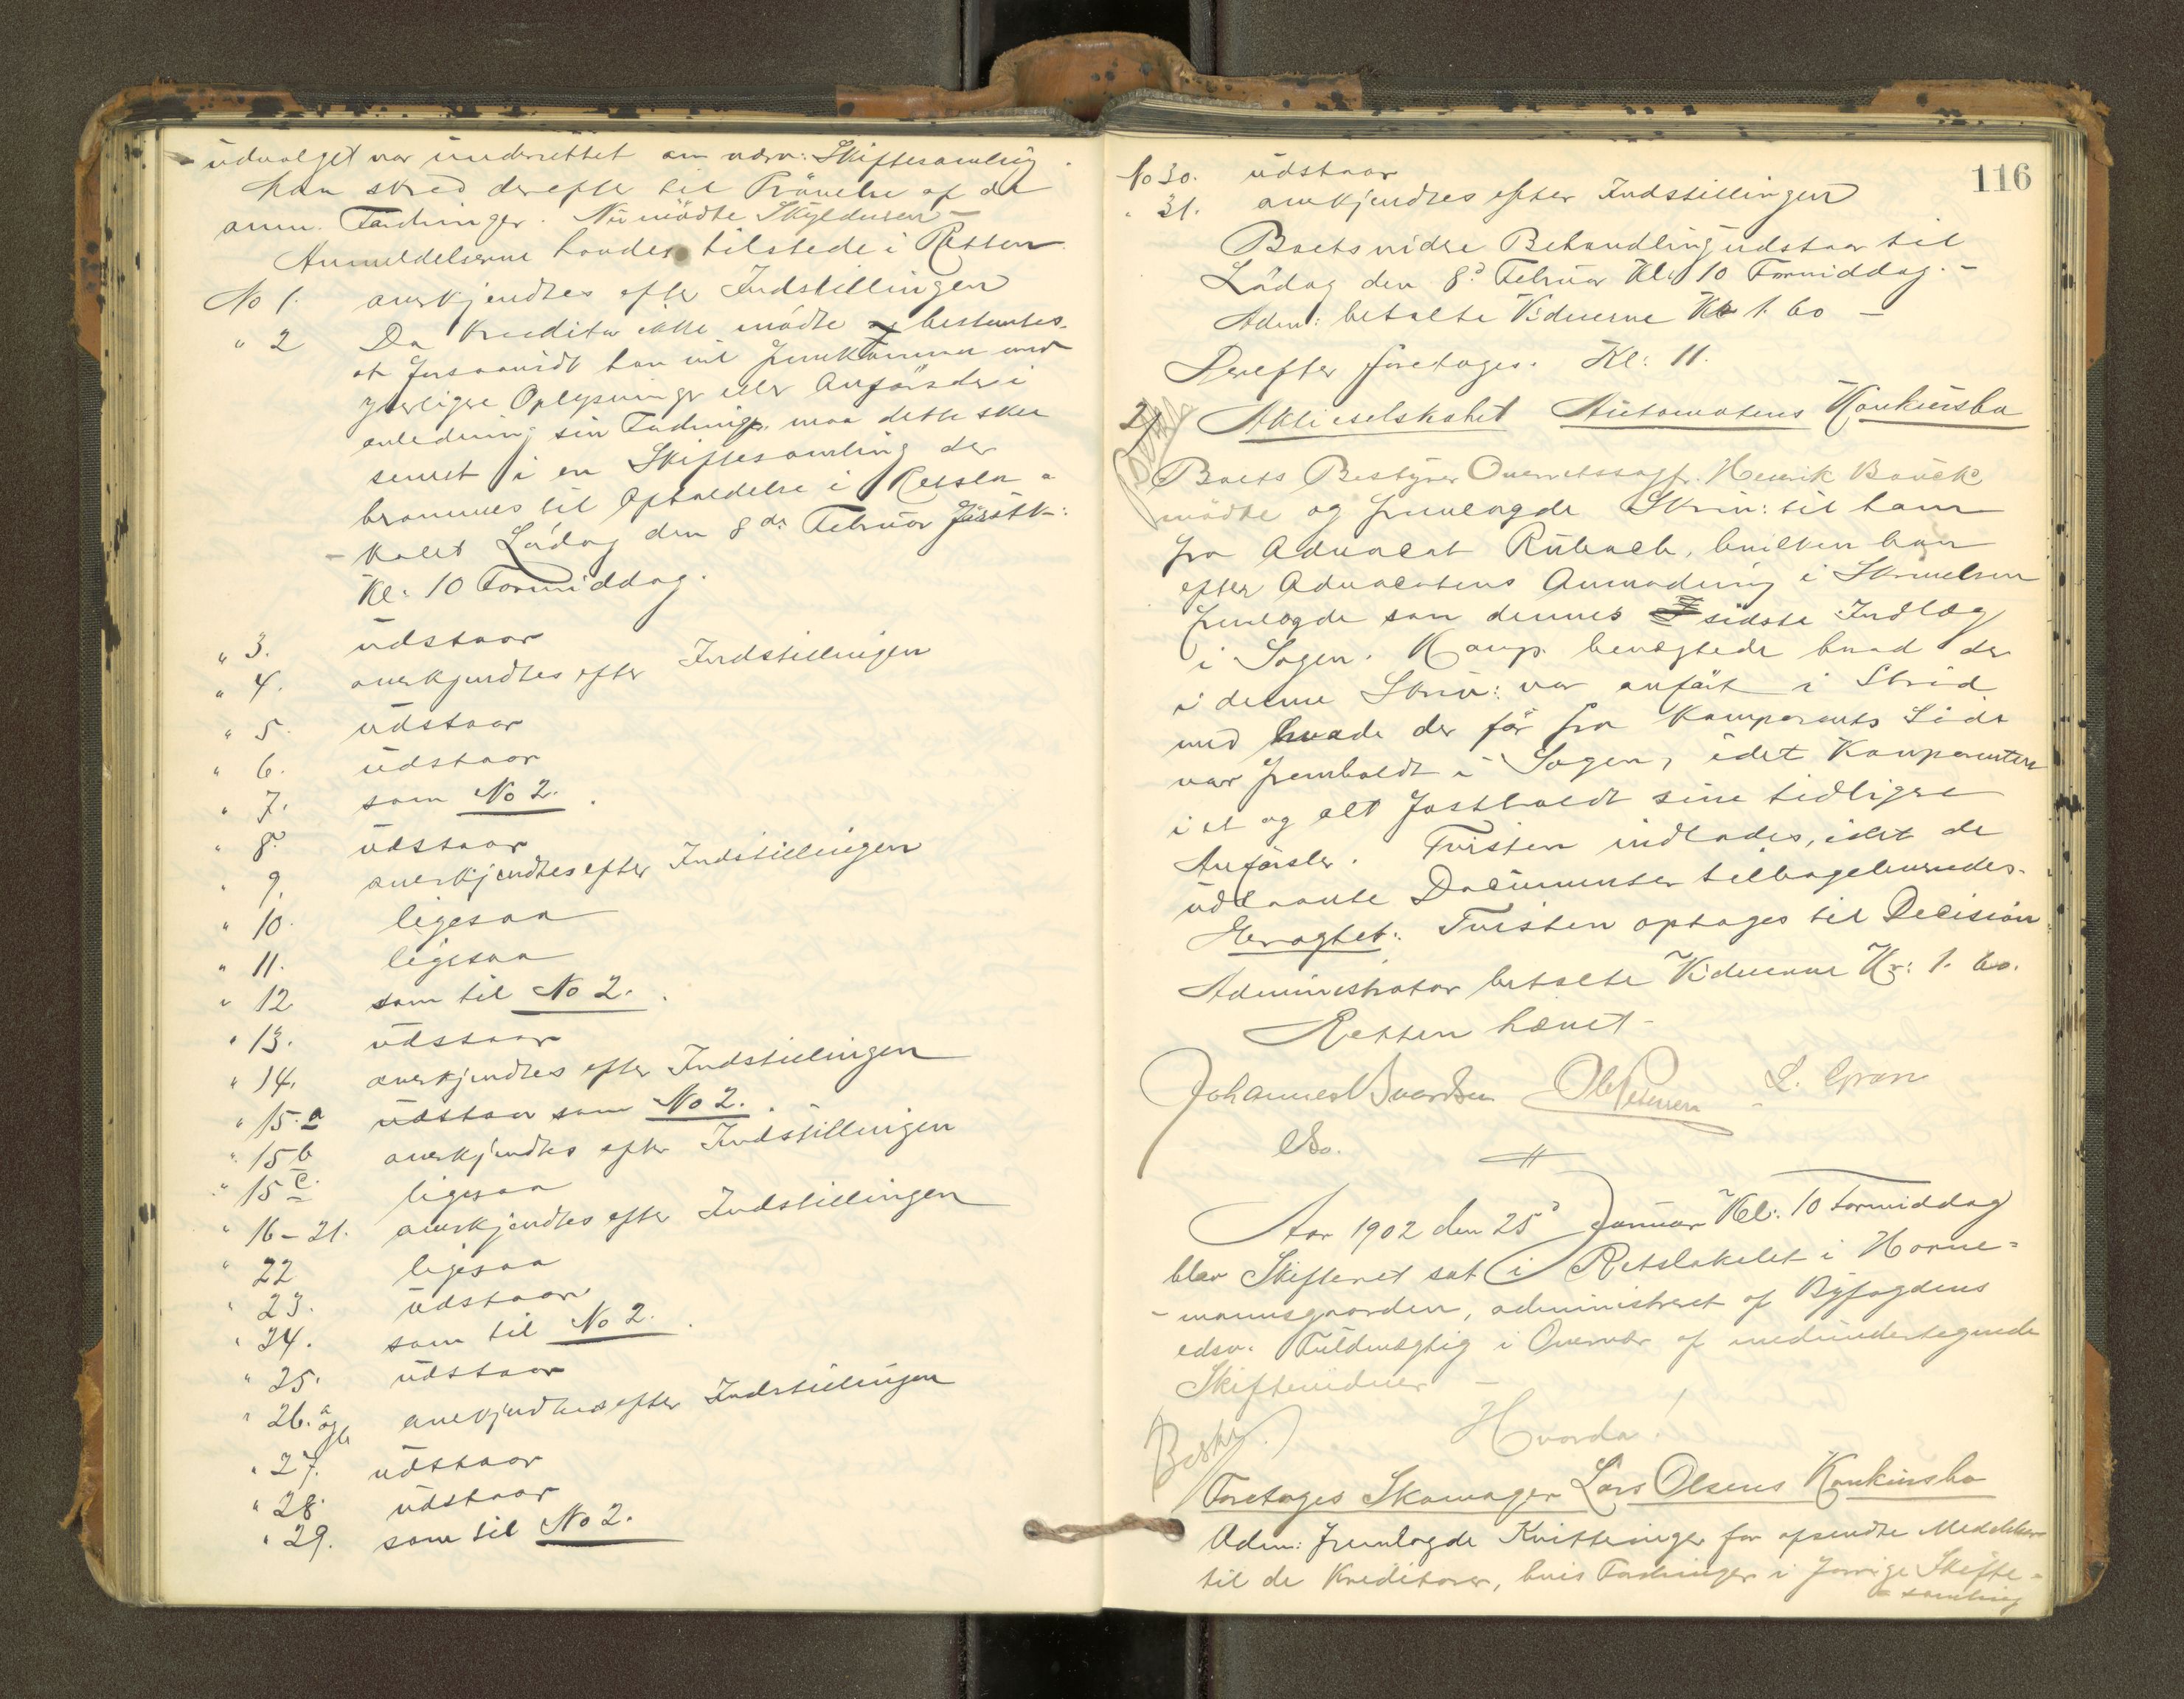 - udvalget var underrettet om nærv: Skiftesamling.
Man skred derefter til Prövelse af de
anm. Fordringer. Nu mödte Skyldneren -
Anmeldelserne havdes tilstede i Retten.
No 1. anerkjendtes efter Indstillingen
" 2 Da Kreditor ikke mödte bestemtes
at forsaavidt han vil fremkomme med
yderligere Oplysninger eller Anförsler i
anledning sin Fordring, maa dette skee
senest i en Skiftesamling der
berammes til Afholdelse i Rets lo-
- kalet Lördag den 8de Februar förstk:
Kl: 10 Formiddag.
" 3. udstaar
" 4. anerkjendtes efter Indstillingen
" 5. udstaar
" 6. udstaar
" 7. som No 2.
" 8. udstaar
" 9. anerkjendtes efter Indstillingen
" 10. ligesaa
" 11. ligesaa
" 12 som til No 2.
" 13. udstaar
" 14. anerkjendtes efter Indstillingen
" 15.a udstaar som No 2.
" 15 b anerkjendtes efter Indstillingen
" 15 c. ligesaa
" 16-21. anerkjendtes efter Indstillingen
" 22 ligesaa
" 23. udstaar
" 24. som til No 2.
" 25. udstaar
" 26. a og b anerkjendtes efter Indstillingen
" 27. udstaar
" 28. udstaar
" 29. som til No 2.
116
No 30. udstaar
" 31. anerkjendtes efter Indstillingen
Boets vidre Behandling udstaar til
Lördag den 8d Februar Kl. 10 Formiddag. -
Adm: betalte Vidnerne Kr 1.60 -
Derefter foretoges. Kl: 11.
2/ Aktieselskabet Automatens Konkursbo
Boets Bestyrer Overretssagf. Henrik Bauck
mödte og fremlagde Skriv: til ham
fra Advocat Rubach, hvilken han
efter Advocatens Anmodning i Skrivelsen
fremlagde som dennes sidste Indlæg
i Sagen. Komp. benægtede hvad der
i denne Skriv: var anfört i Strid
med hvad der för fra Komparents Side
var fremholdt i Sagen, idet Komparenten
i et og alt fastholdt sine tidligere
Anförsler. Tvisten indlades, idet de
udlaante Documenter tilbageleveredes.
Eragtet: Tvisten optages til Decision
Administrator betalte Vidnerne Kr: 1.60.
Retten hævet -
Johannes Ole Petersen L. Gran
Aar 1902 den 25d Januar Kl: 10 Formiddag
blev Skifteret sat i Retslokalet i Horne=
- mannsgaarden, administreret af Byfogdens
edsv. Fuldmægtig i Overvær af medundertegnede
Skiftevidner -
Hvorda!
Foretoges Skomager Lars Olsens Konkursbo
Adm: fremlagde Kvitteringer for afsendte Meddelelser
til de Kreditorer, hvis Fordringer i forrige Skifte-
- samling